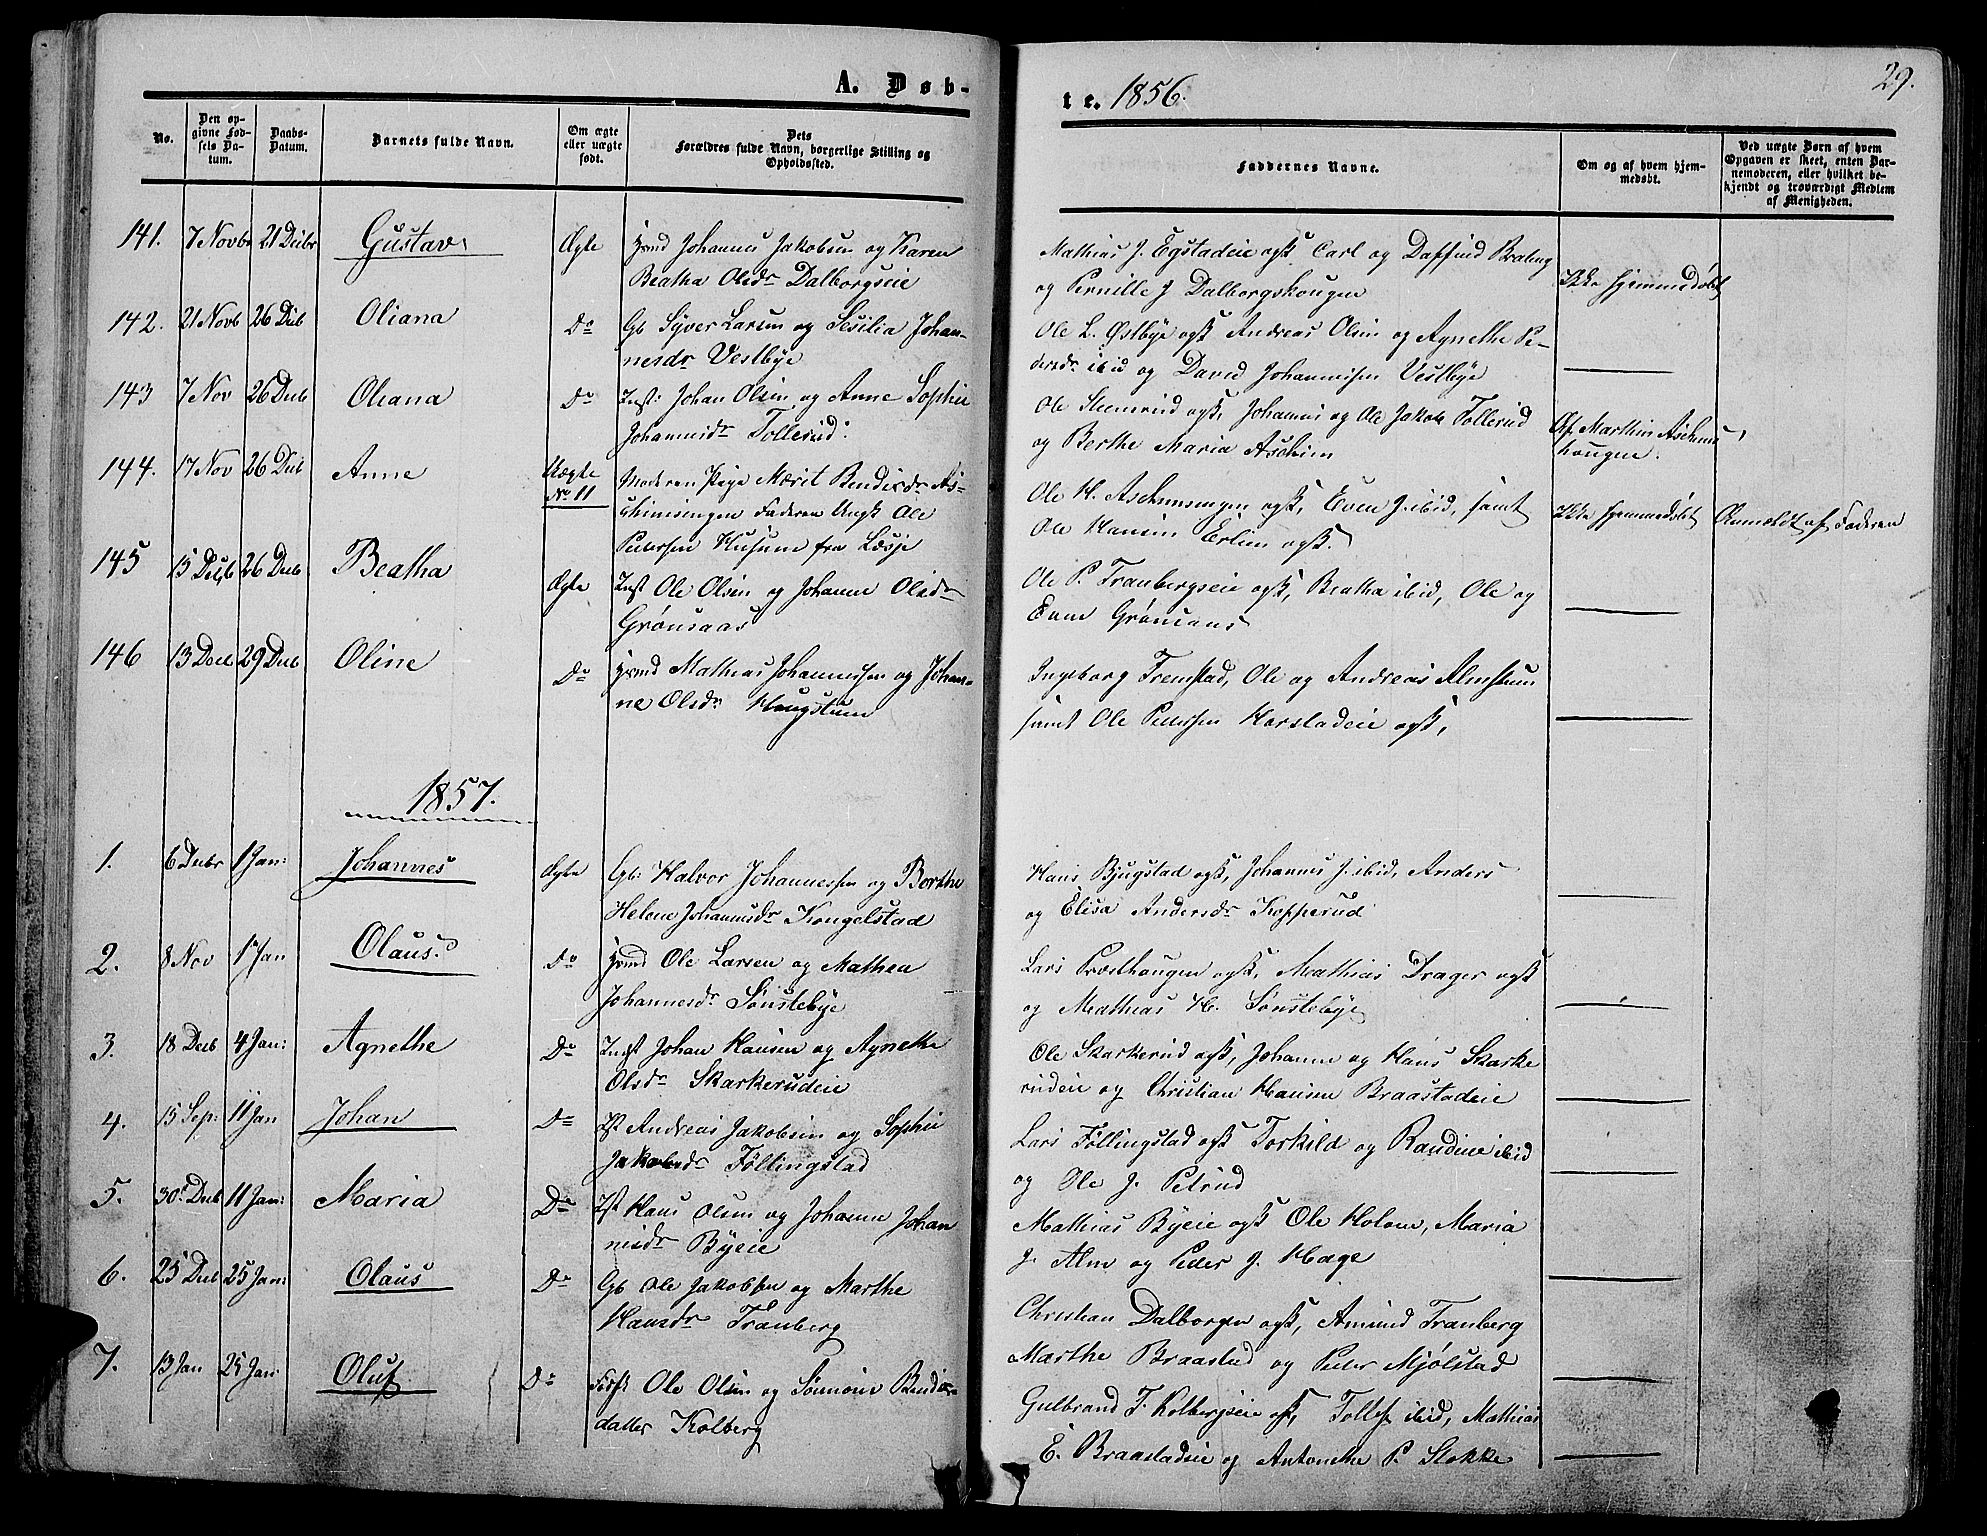 A. Døb-
te. 1856.
29.
No.
Den op-
givne Fød-
sels Da-
tum.
Daabs-
Datum.
Barnets fulde Navn.
Om ægte
eller uægte
født.
Dets
Forældres fulde Navn, borgerlige Stilling og
Opholdssted.
Faddernes Navne.
Om og af hvem hjem-
medøbt.
Ved uægte Børn af hvem
Opgaven er skeet, enten Bar-
nemoderen, eller hvilket be-
kjendt og troværdigt Medlem
af Menigheden.
141. 7 Novbr 21 Decbr Gustav Ægte Hmd Johannes Jakobsen og Karen
Beatha Olsdr Dalborgseie
Mathias J. Egstadeie ogst Carl og Daffind
og Pernille J Dalborgshougen
Ikke hjemmedøbt
142. 21 Novb 26 Decb Oliana Do Gb Syver Larsen og Sesilia Johan-
nesdr Vestbye
Ole L. Østbye ogst Andreas Olsen og Agnethe Pe-
dersdr ibid og David Johannesen Vestbye
143 7 Nov 26 Decb Oliana Do Inst: Johan Olsen og Anne Sophie
Johannesdr Tollerud.
Ole Steensrud ogst, Johannes og Ole Jakob Tollerud
og Berthe Maria Aschim
Af Marthin
hougen.
144. 17 Nov 26 Decb Anne Uægte
No 11
Moderen Pige Marit Bendixdr As-
chimsengen Faderen Ungk Ole
Petersen Husum fra Læsje
Ole H. ogst, Even J. ibid, samt
Ole Hansen ogst.
Ikke hjemmedøbt Anmeldt af Faderen
145 15 Decb 26 Decb Beatha Ægte Inst Ole Olsen og Johanne Olsdr
Grønsaas
Ole P. Tranbergseie ogst, Beatha ibid, Ole og
Even Grønsaas
146 13 Decb 29 Decb Oline Do Hmd Mathias Johannessen og Johan-
ne Olsdr Haugstuen
Ingeborg Fremstad, Ole og Andreas Almstuen
samt Ole Petersen Harstadeie ogst,
1857.
1. 6 Decbr 1 Jan: Johannes Ægte Gb: Halvor Johannessen og Berthe
Helene Johannesdr Kongelstad
Hans Bjugstad ogst, Johannes J. ibid, Anders
og Elisa Andersdr Kopperud
2. 8 Nov 1 Jan Olaus. Do Hmd Ole Larsen og Mathea
Johannesdr Sønstebye
Lars Præsthougen ogst, Mathias Drager ogst
og Mathias H. Sønstebye
3. 18 Decb 4 Jan: Agnethe Do Indst Johan Hansen og Agnethe
Olsdr Skarkerudeie
Ole Skarkerud ogst, Johanne og Hans Skarke
rudeie og Christian Hansen Braastadeie
4. 15 Sep: 11 Jan Johan Do Ist Andreas Jakobsen og Sophie
Jakobsdr Føllingstad
Lars Føllingstad ogst Torkild og Randine ibid
og Ole J. Petrud
5. 30 Decb 11 Jan: Maria Do Ist Hans Olsen og Johanne Johan
nesdr Byeie
Mathias Byeie ogst Ole Holen, Maria
J. Alm og Peder J. Hage
6. 25 Decb 25 Jan: Olaus Do Gb Ole Jakobsen og Marthe
Hansdr Tranberg
Christian Dalborgen ogst, Amund Tranberg
Marthe Braastad og Peder Mjølstad
7. 13 Jan 25 Jan Oluf Do Ole Olsen og Bendix-
datter Kolberg
Gulbrand T. Kolbergseie ogst, Tollef ibid, Mathias
E. Braastadeie og Antonethe P. Stokke